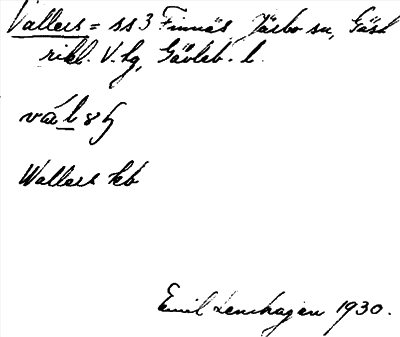 Vallers = ss 3 Finnäs Järbo sn, Gästrikl. V. hg, Gävleb. l.
Wallers kb
Emil Lenhagen 1930.